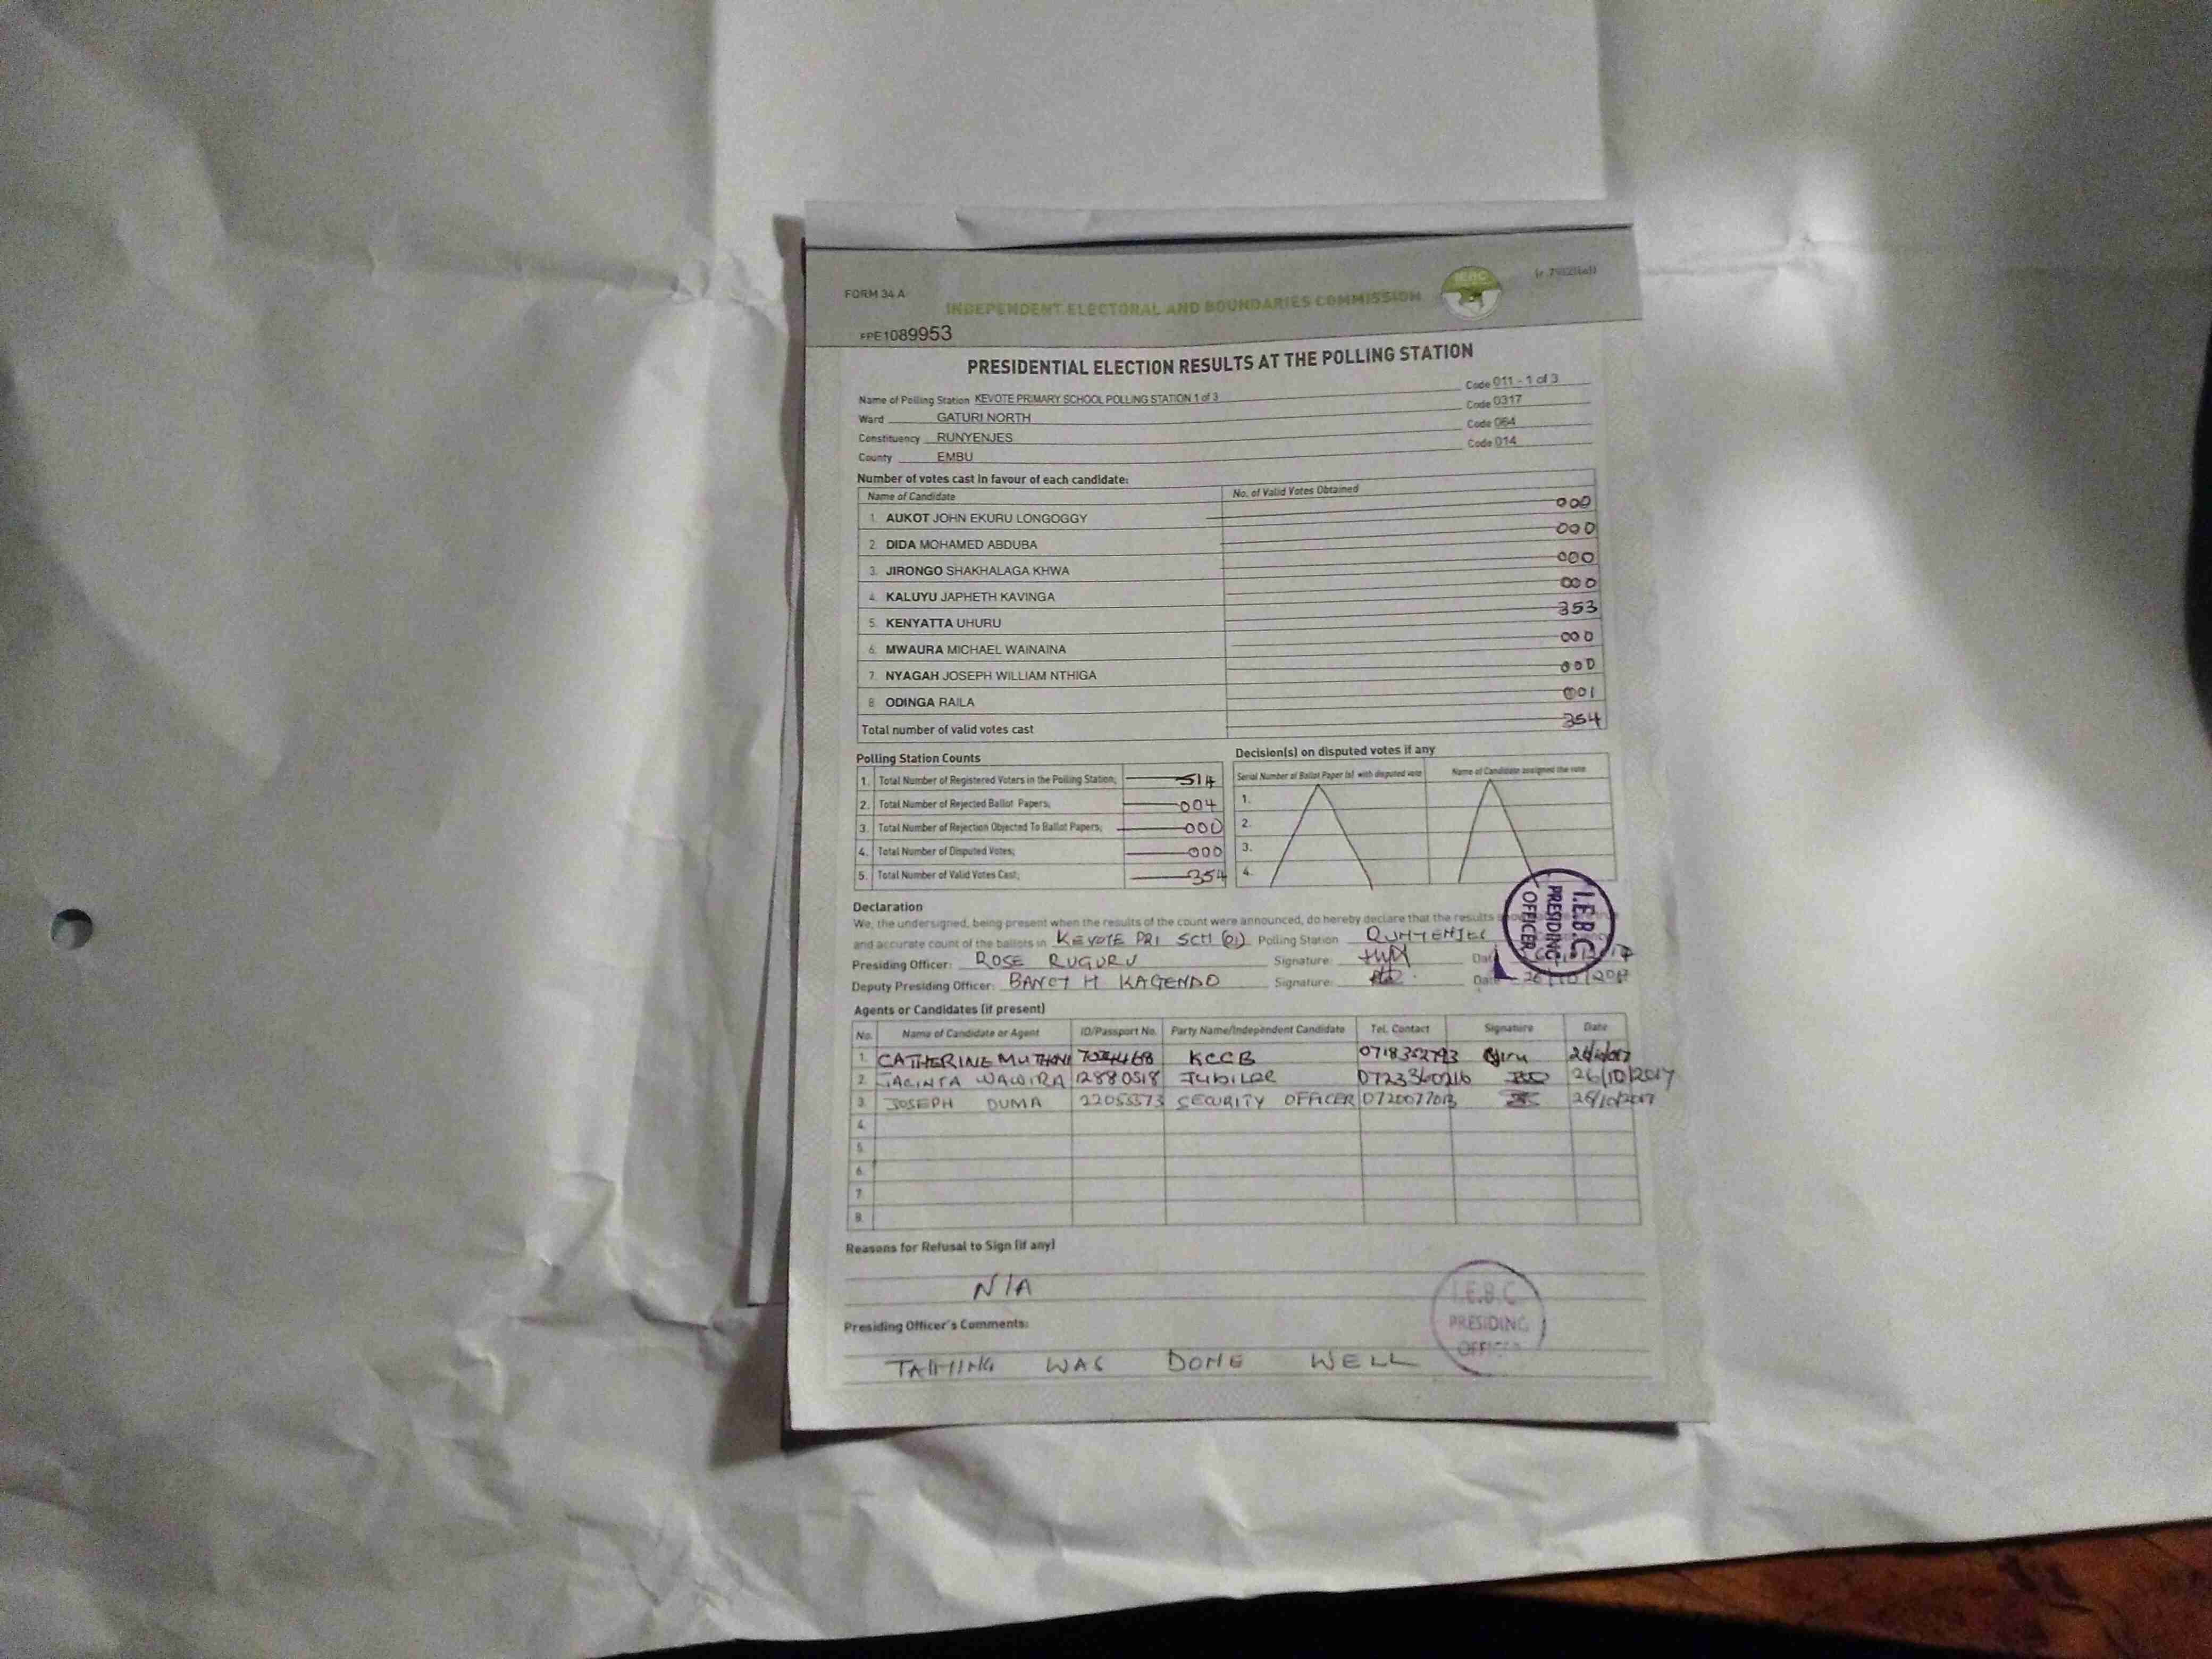 FORM 34 A
INDEPENDENT ELECTORAL AND BOUNDARIES COMMISSION
IEBC
FPE1089953
PRESIDENTIAL ELECTION RESULTS AT THE POLLING STATION
Name of Polling Station KEVOTE PRIMARY SCHOOL POLLING STATION 1 of 3 Code 011 - 1 of 3
Ward GATURI NORTH Code 0317
Constituency RUNYENJES Code 064
County EMBU Code 014
Number of votes cast in favour of each candidate:
Name of Candidate No. of Valid Votes Obtained
1. AUKOT JOHN EKURU LONGOGGY 000
2. DIDA MOHAMED ABDUBA 000
3. JIRONGO SHAKHALAGA KHWA 000
4. KALUYU JAPHETH KAVINGA 000
5. KENYATTA UHURU 353
6. MWAURA MICHAEL WAINAINA 000
7. NYAGAH JOSEPH WILLIAM NTHIGA 000
8. ODINGA RAILA 001
Total number of valid votes cast 354
Polling Station Counts Decision(s) on disputed votes if any
Serial Number of Ballot Paper (s) with disputed vote Name of Candidate assigned the vote
1. Total Number of Registered Voters in the Polling Station; 514 1.
2. Total Number of Rejected Ballot Papers; 004 2.
3. Total Number of Rejection Objected To Ballot Papers; 000 3.
4. Total Number of Disputed Votes; 000 4.
5. Total Number of Valid Votes Cast; 354
Declaration
We, the undersigned, being present when the results of the count were announced, do hereby declare that the results
and accurate count of the ballots in KEVOTE PRI SCH (01) Polling Station
Presiding Officer: ROSE RUGURU Signature:
Deputy Presiding Officer: KAGENDO Signature: Date 26/10/2017
I.E.B.C. PRESIDING OFFICER
Agents or Candidates (if present)
No. Name of Candidate or Agent ID/Passport No. Party Name/Independent Candidate Tel. Contact Signature Date
1. CATHERINE MUTHONI KCCB 0718352793
2. JACINTA WAWIRA 12880518 JUBILEE 0723360216 26/10/2017
3. JOSEPH DUMA 22055573 SECURITY OFFICER 0720077013 26/10/2017
4.
5.
6.
7.
8.
Reasons for Refusal to Sign (if any)
N/A
Presiding Officer's Comments:
WAS DONE WELL
I.E.B.C. PRESIDING OFFICER